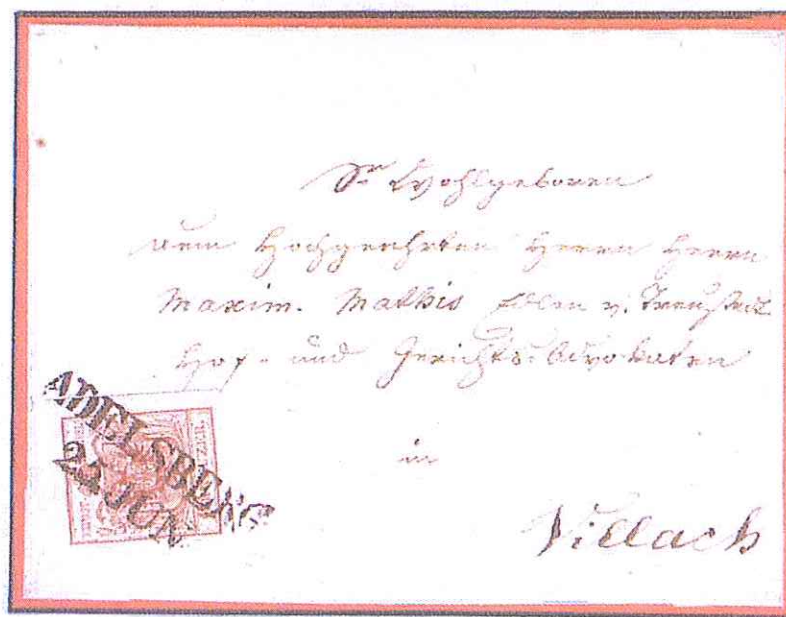 Sr Wohlgeboren
dem Hochgeehrten Herrn Herrn
Maxim. Mathis Edlen v. Treustedt
Hof- und Gerichts-Advokaten
in
Villach
ADELSBERG
JUN